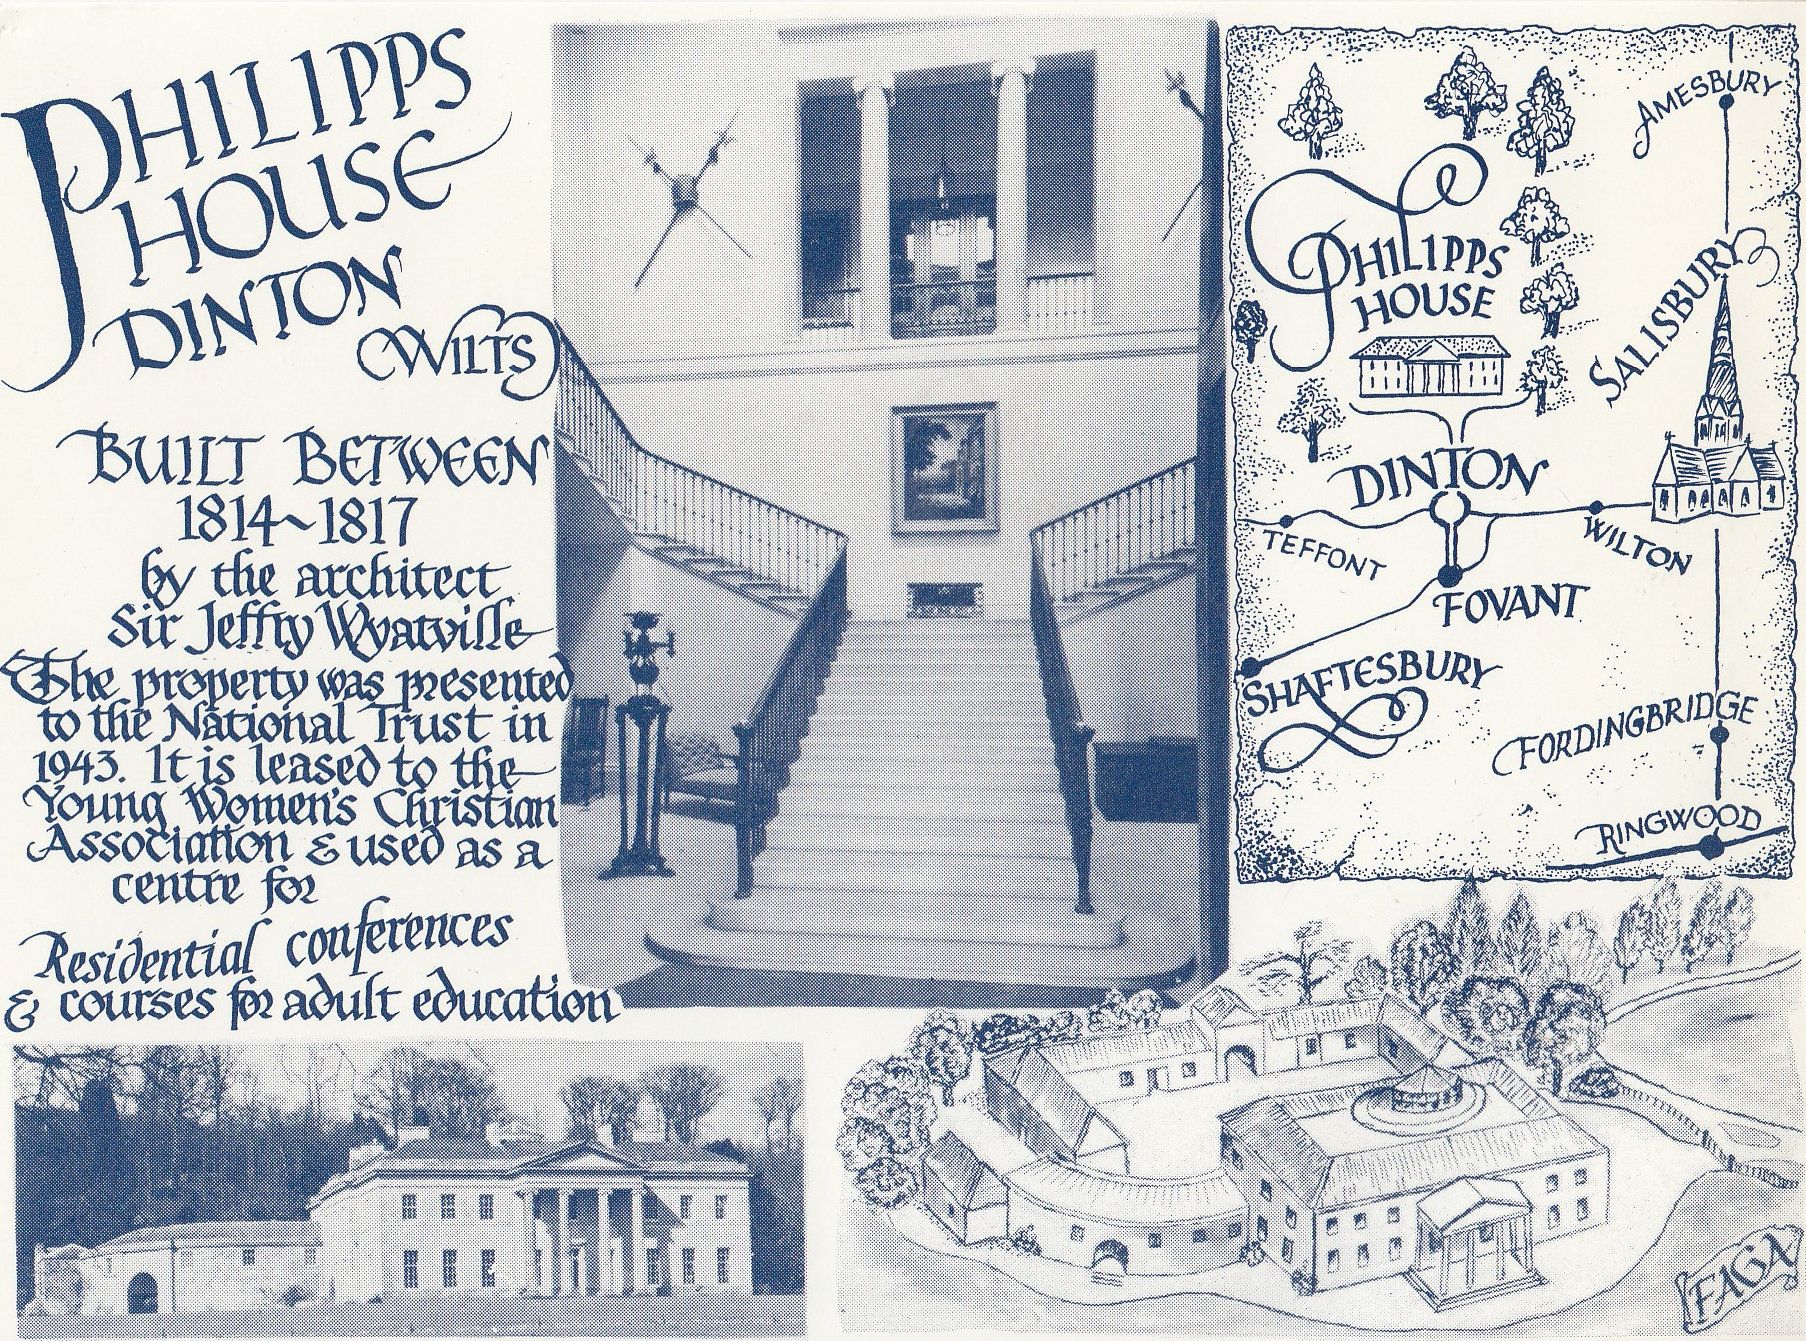 PHILIPPS
HOUSE
DINTON
WILTS
BUILT BETWEEN
1814~1817
by the architect
Sir Jeffry Wyatville
The property was presented
to the National Trust in
1943. It is leased to the
Young Women's Christian
Association & used as a
centre for
Residential conferences
& courses for adult education
AMESBURY
PHILIPPS
HOUSE
SALISBURY
DINTON
TEFFONT
WILTON
FOVANT
SHAFTESBURY
FORDINGBRIDGE
RINGWOOD
FAGA